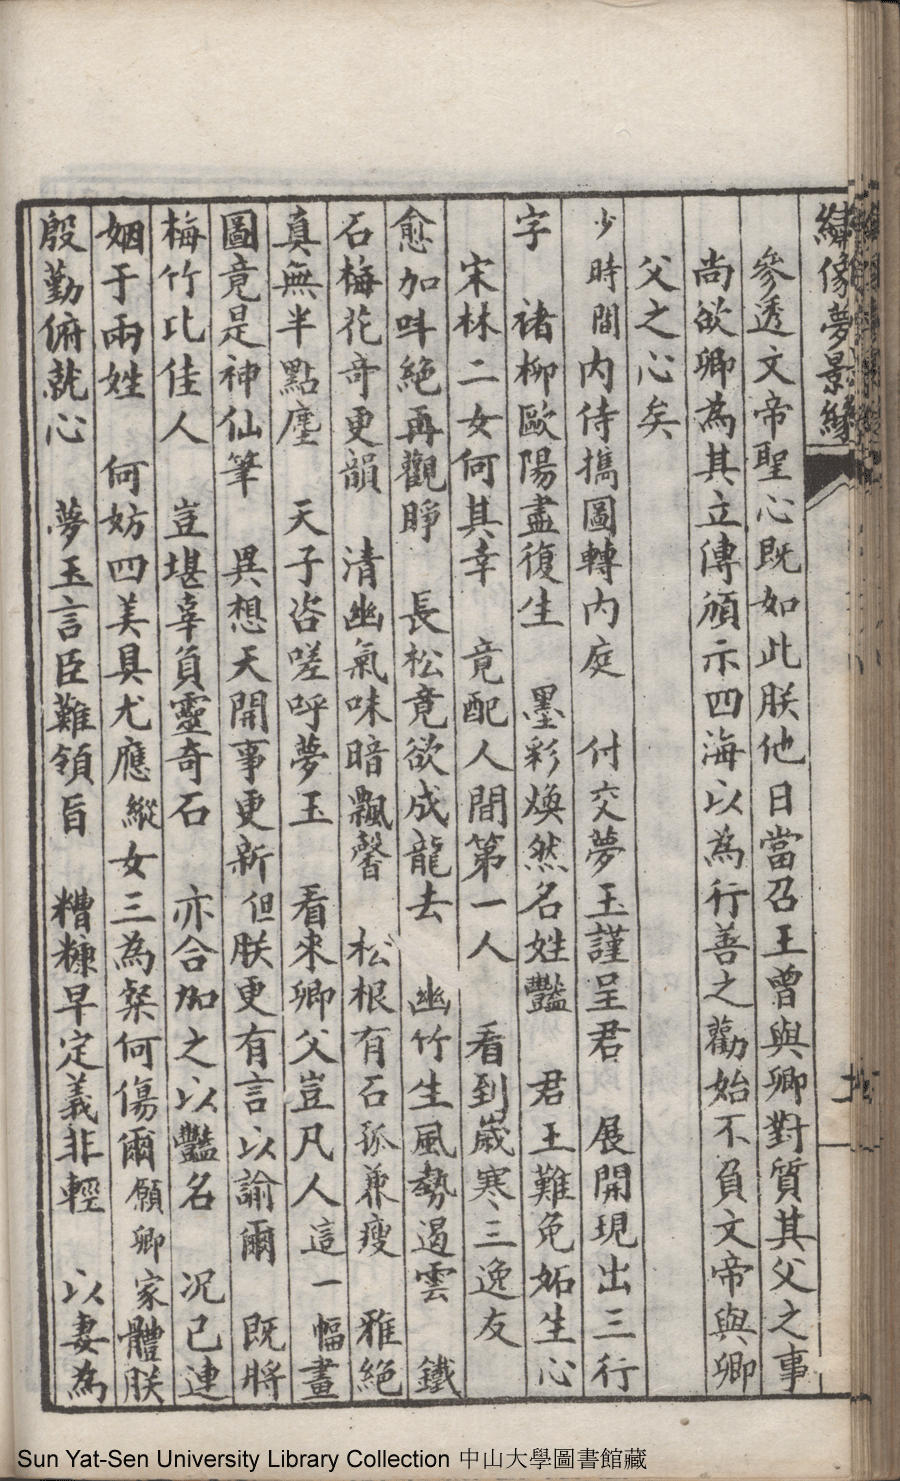 繡像夢景緣
參透文帝聖心既如此朕他日當召王曾與卿對質其父之事
尚欲卿為其立傳頒示四海以為行善之勸始不負文帝與卿
父之心矣
少時間內侍攜圖轉內庭 付交夢玉謹呈君 展開現出三行
字 褚柳歐陽盡復生 墨彩煥然名姓豔 君王難免妬生心
宋林二女何其幸 竟配人間第一人 看到歲寒三逸友
愈加呌絕再觀睜 長松竟欲成龍去 幽竹生風勢遏雲 鐵
石梅花奇更韻 清幽氣味暗飄馨 松根有石孤兼瘦 雅絕
真無半點塵 天子咨嗟呼夢玉 看來卿父豈凡人這一幅畫
圖竟是神仙筆 異想天開事更新但朕更有言以諭爾 既將
梅竹比佳人 豈堪辜負靈奇石 亦合加之以豔名 況已連
姻于兩姓 何妨四美具尤應縱女三為粲何傷爾願卿家體朕
殷勤俯就心 夢玉言臣難領旨 糟糠早定義非輕 以妻為
Sun Yat-Sen University Library Collection 中山大學圖書館藏